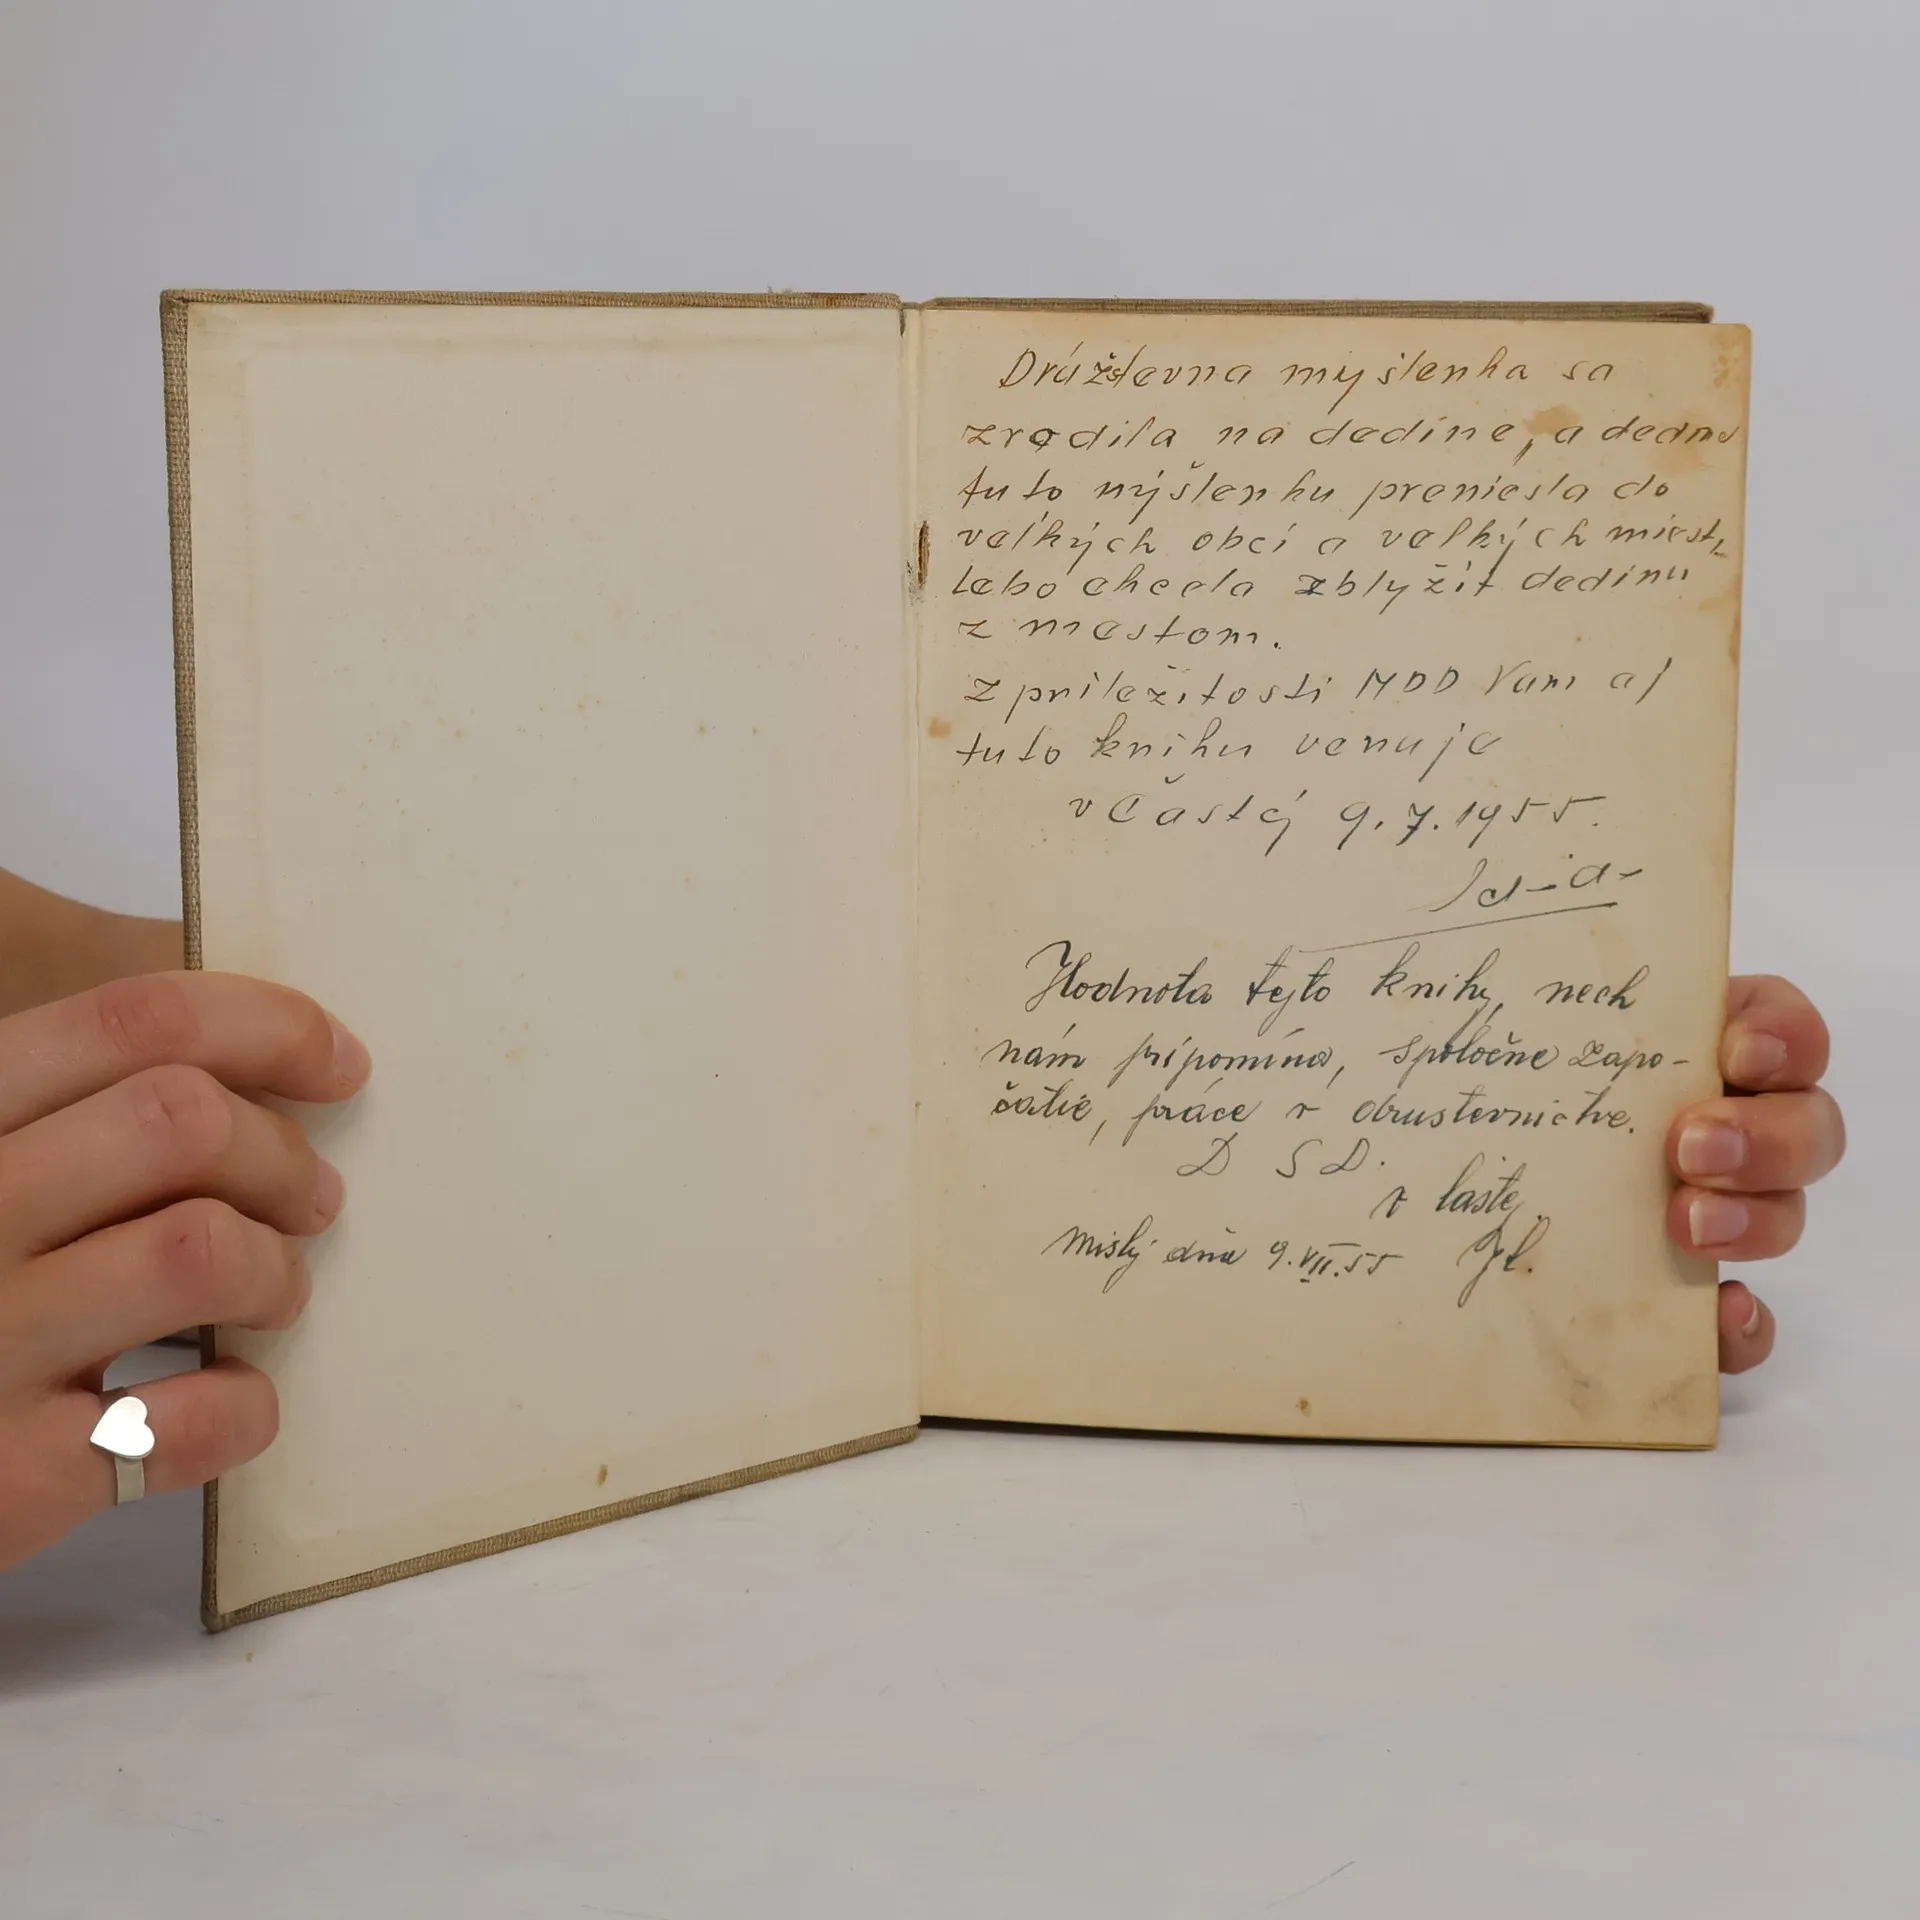 Drúžstevna myšlenka sa
zrodila na dedine, a
tuto mýšlenku preniesla do
veľkých obcí a veľkých miest,
lebo chcela zblyžiť dedinu
z mestom.
Z príležitosti MDD Vam aj
tuto knihu venuje
v Častéj 9.7.1955.
Hodnota tejto knihy, nech
nám pripomína, spoločne zapo-
čatie, práce v drustevnictve.
D S D.
v
dňa 9.VII.55